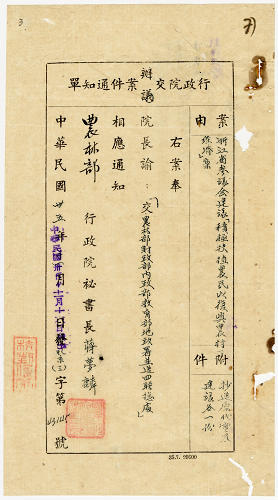 行政院交辦議案件通知單
案由
浙江省參議會建議積極扶植農民以復興農村經濟案
附件
抄送原代電及建議各一份
右案奉
院長諭：「交農林部財政部內政部教育部地政署並送四聯總處」
相應通知
農林部
行政院祕書長蔣夢麟
中華民國卅五年
十一月十
日
字第
號
35.7. 99600